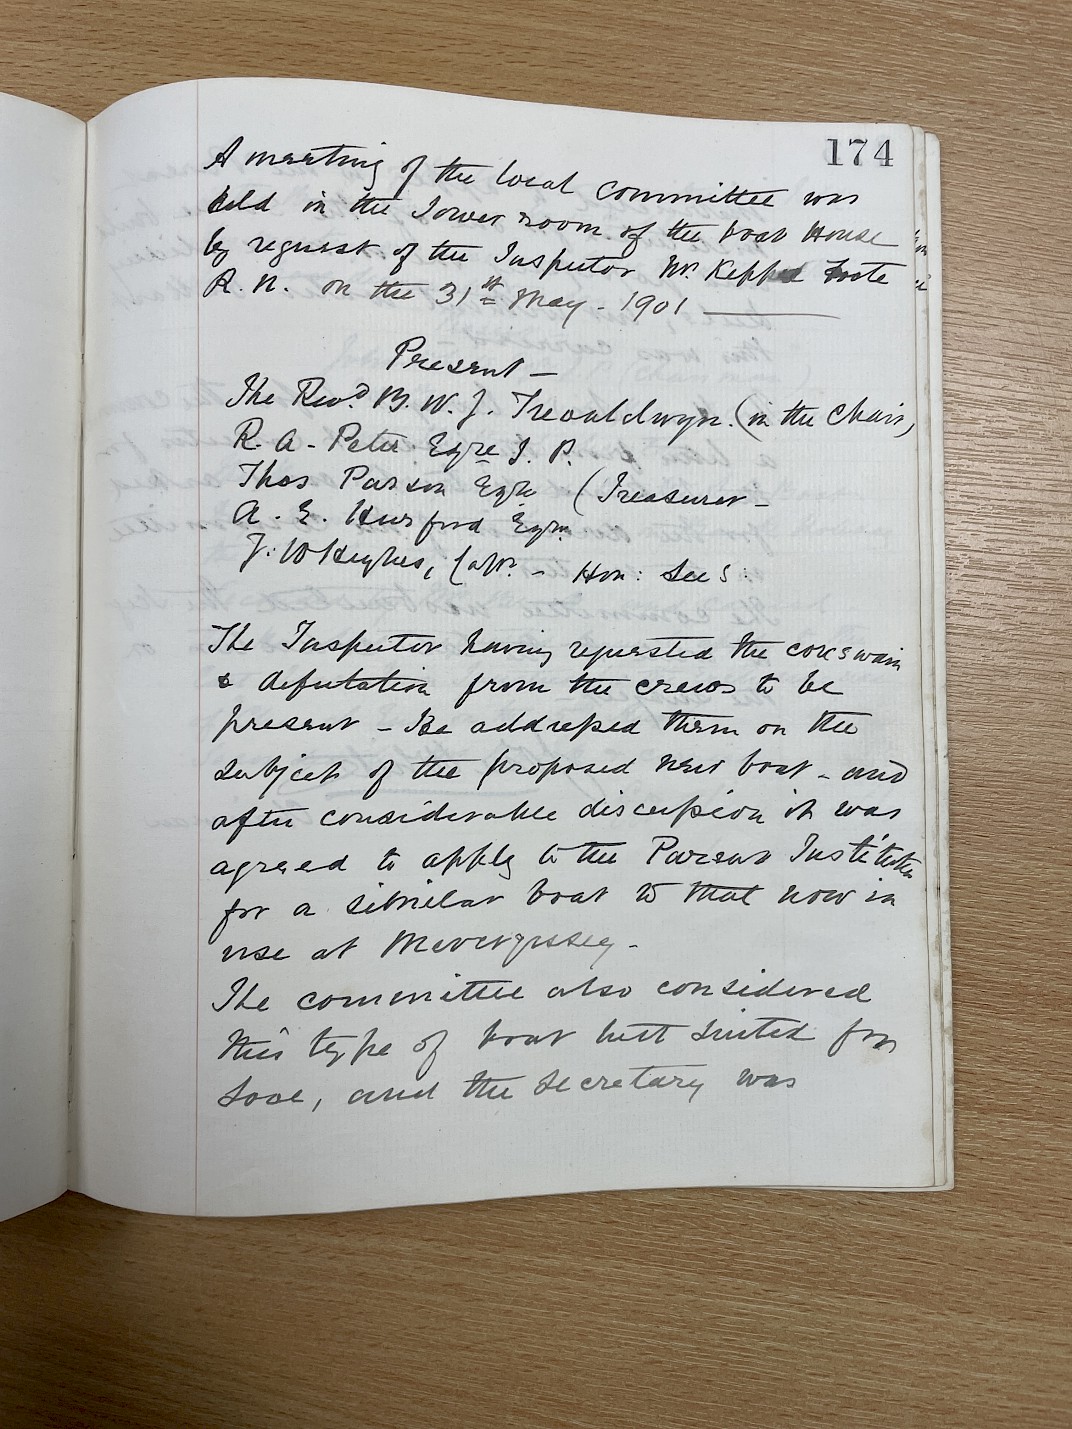 174
A meeting of the local committee was
held in the Tower room of the boat House
by request of the Inspector Mr. Keppel Foote
R. N. on the 31st May - 1901
Present -
The Revd. B. W. J. Trevaldwyn. (in the Chair)
R. A - Peter Eqre J. P.
Thos Parson Eqre (Treasurer -
A. E. Hurford Eqre
J: W Hughes, Capt. - Hon: Sec S:
The Inspector having requested the coxswain
& deputation from the crews to be
present - He addressed them on the
subject of the proposed new boat - and
after considerable discussion it was
agreed to apply to the Parent Institution
for a similar boat to that now in
use at Mevagissey -
The committee also considered
this type of boat best suited for
Looe, and the Secretary was